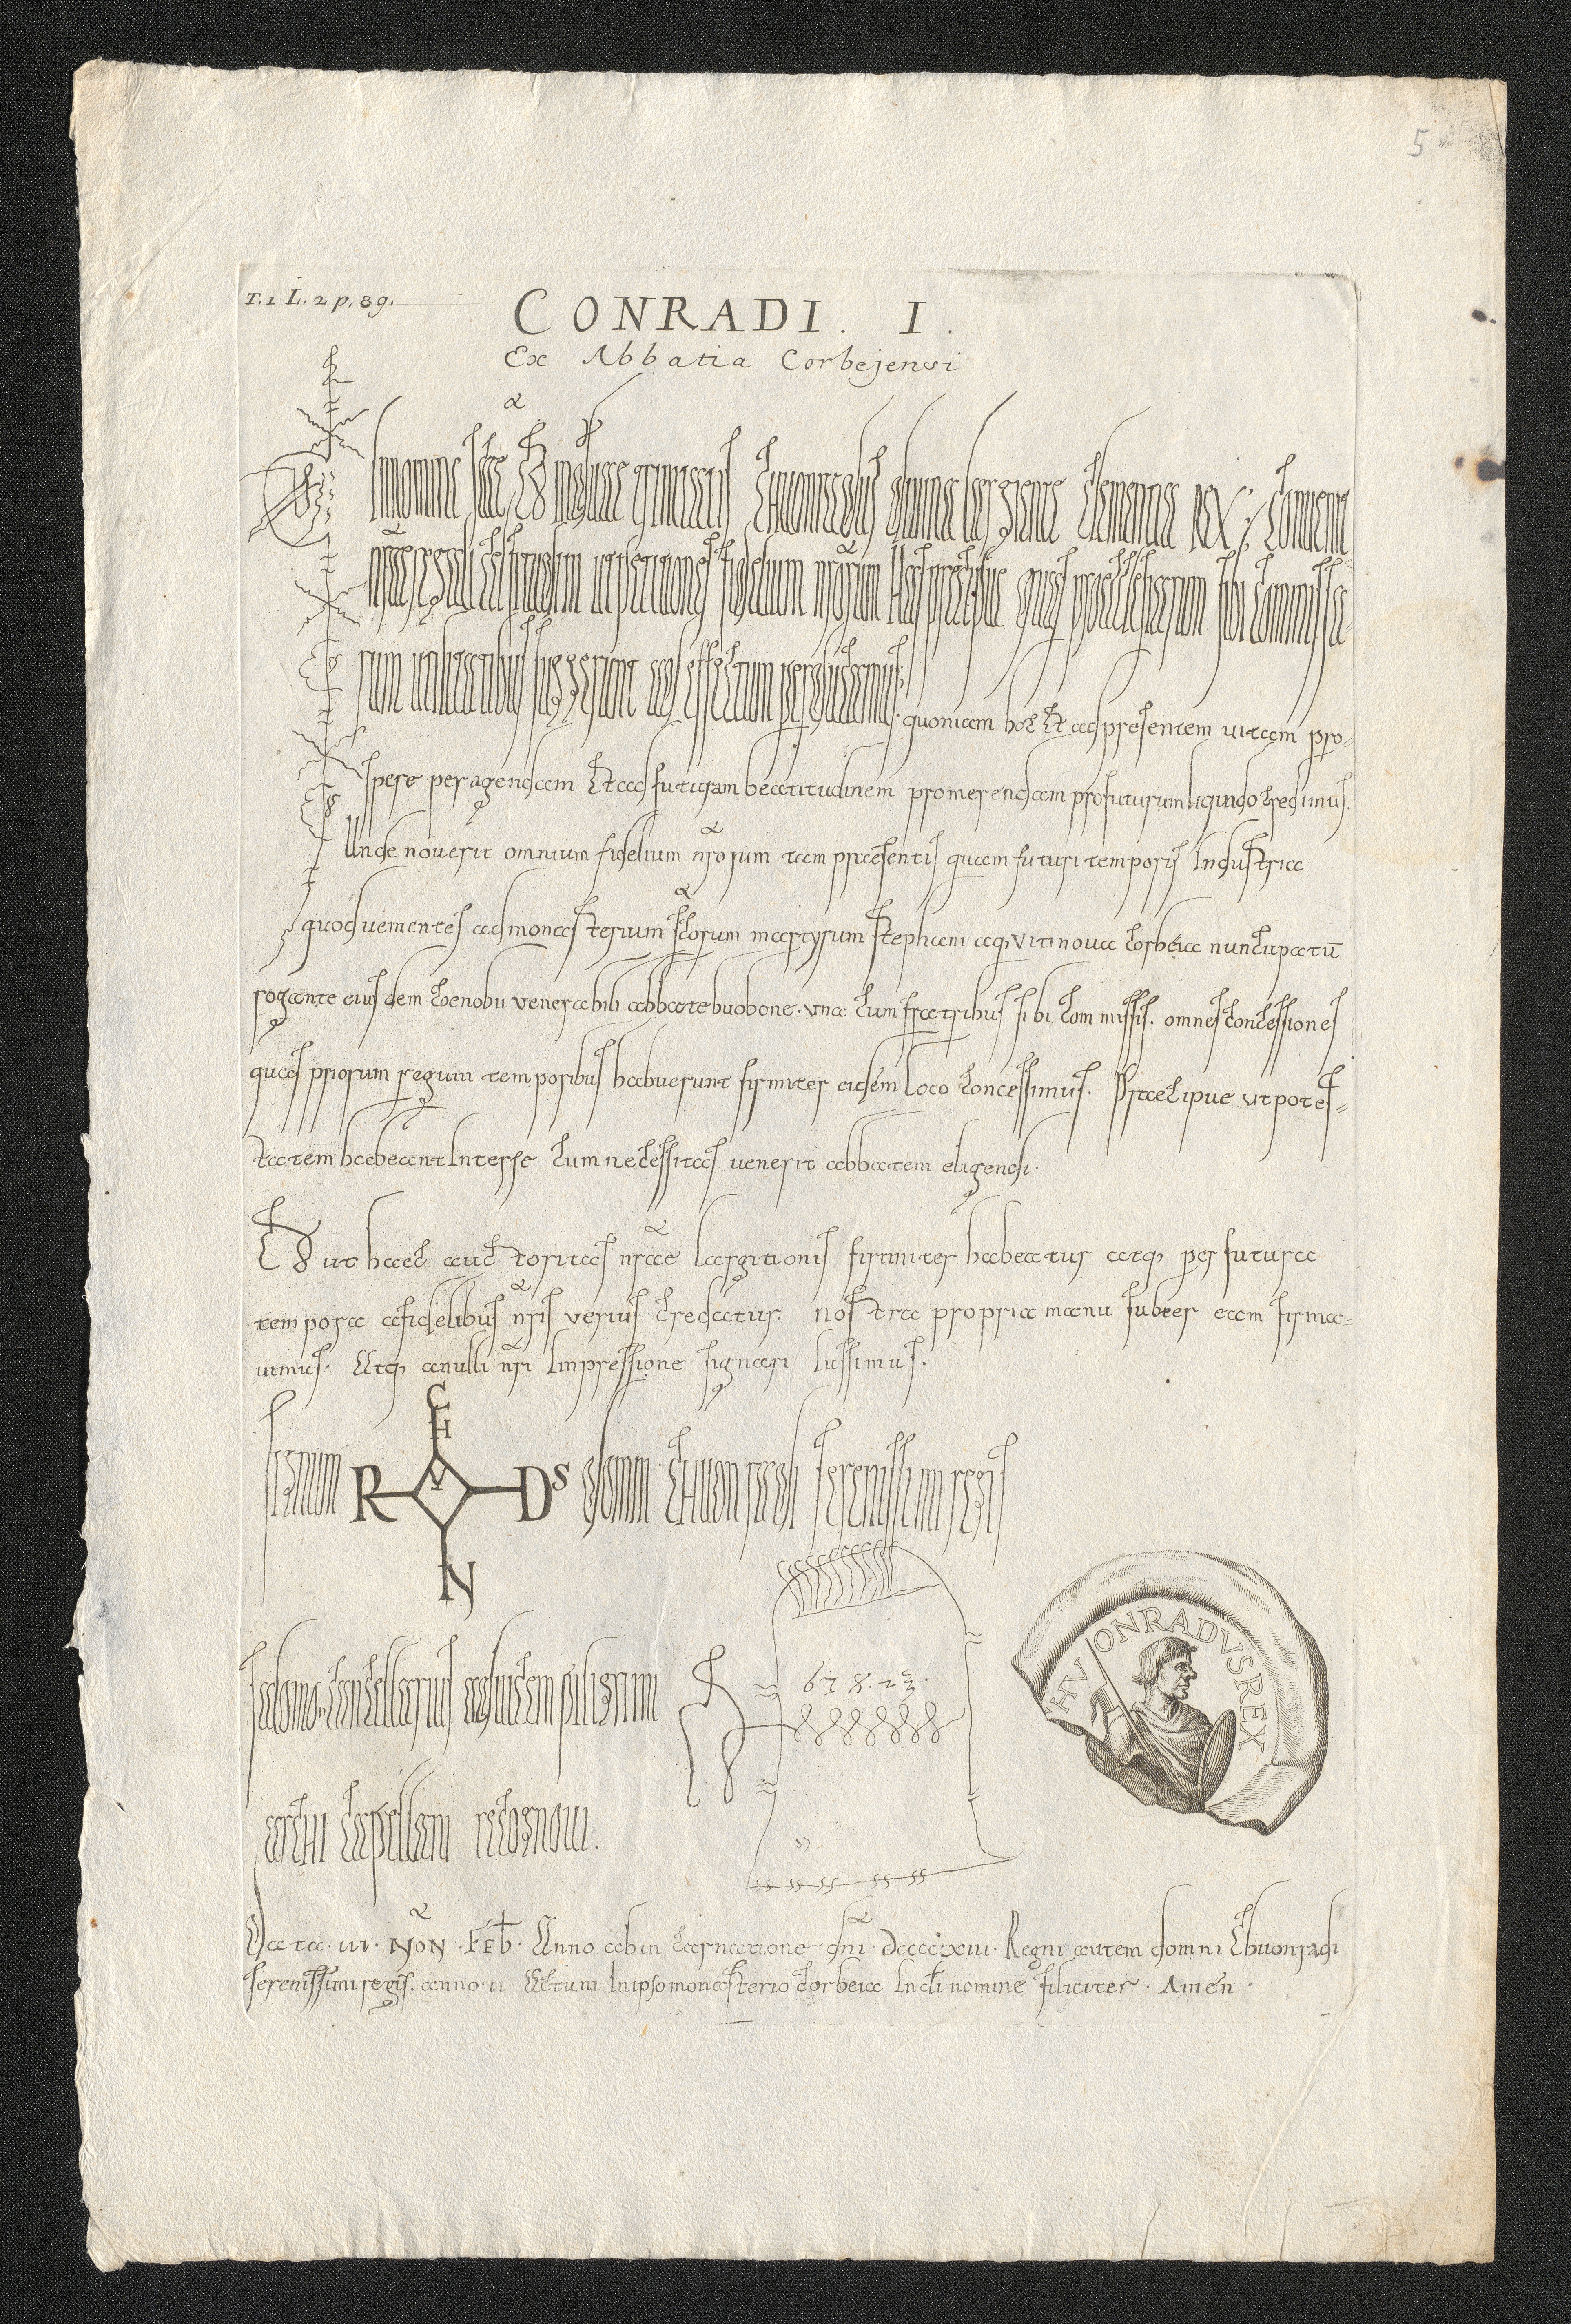 5
T. 1 L. 2 p. 89.
CONRADI . I .
Ex Abbatia Corbejensi
In nomine scae et individuae trinitatis Chuonradus divina largiente clementia rex : Convenit
nrae regali celsitudini ut petitiones fidelium nrorum has precipue quas pro ecclesiarum sibi commissa-
rum utilitatibus suggerunt ad effectum perducamus. quoniam hoc et ad presentem vitam pro-
spere peragendam et ad futuram beatitudinem promerendam profuturum liquido credimus.
Unde noverit omnium fidelium nrorum tam praesentis quam futuri temporis industria
quod venientes ad monasterium scorum martyrum stephani atq viti nova corbeia nuncupatū
rogante eiusdem coenobii venerabili abbate buobone . una cum fratribus sibi commissis . omnes concessiones
quas priorum regum temporibus habuerunt firmiter eidem loco concessimus . Praecipue ut potes-
tatem habeant inter se cum necessitas venerit abbatem eligendi .
Et ut haec auctoritas nrae largitionis firmiter habeatur atq per futura
tempora a fidelibus nris verius credatur . nostra propria manu subter eam firma-
vimus . Atq anulli nri impressione signari iussimus .
Signum CH R V Ds N domni Chuonradi serenissimi regis
Salomo cancellarius ad vicem piligrimi
HVONRADVS REX
archi capellani recognovi .
Data . III . NON . FEB . Anno ab incarnatione dni . DCCCCXIII . Regni autem domni Chuonradi
serenissimi regis . anno . II . Actum in ipso monasterio corbeia in di nomine filiciter . Amen .